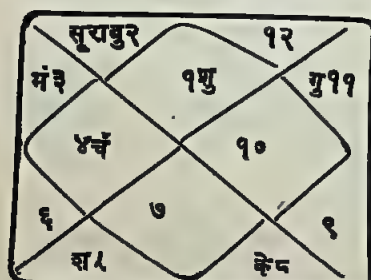 सूराबु२ १२
मं३ १शु गु११
४चं १०
६ ७ ९
श५ के८